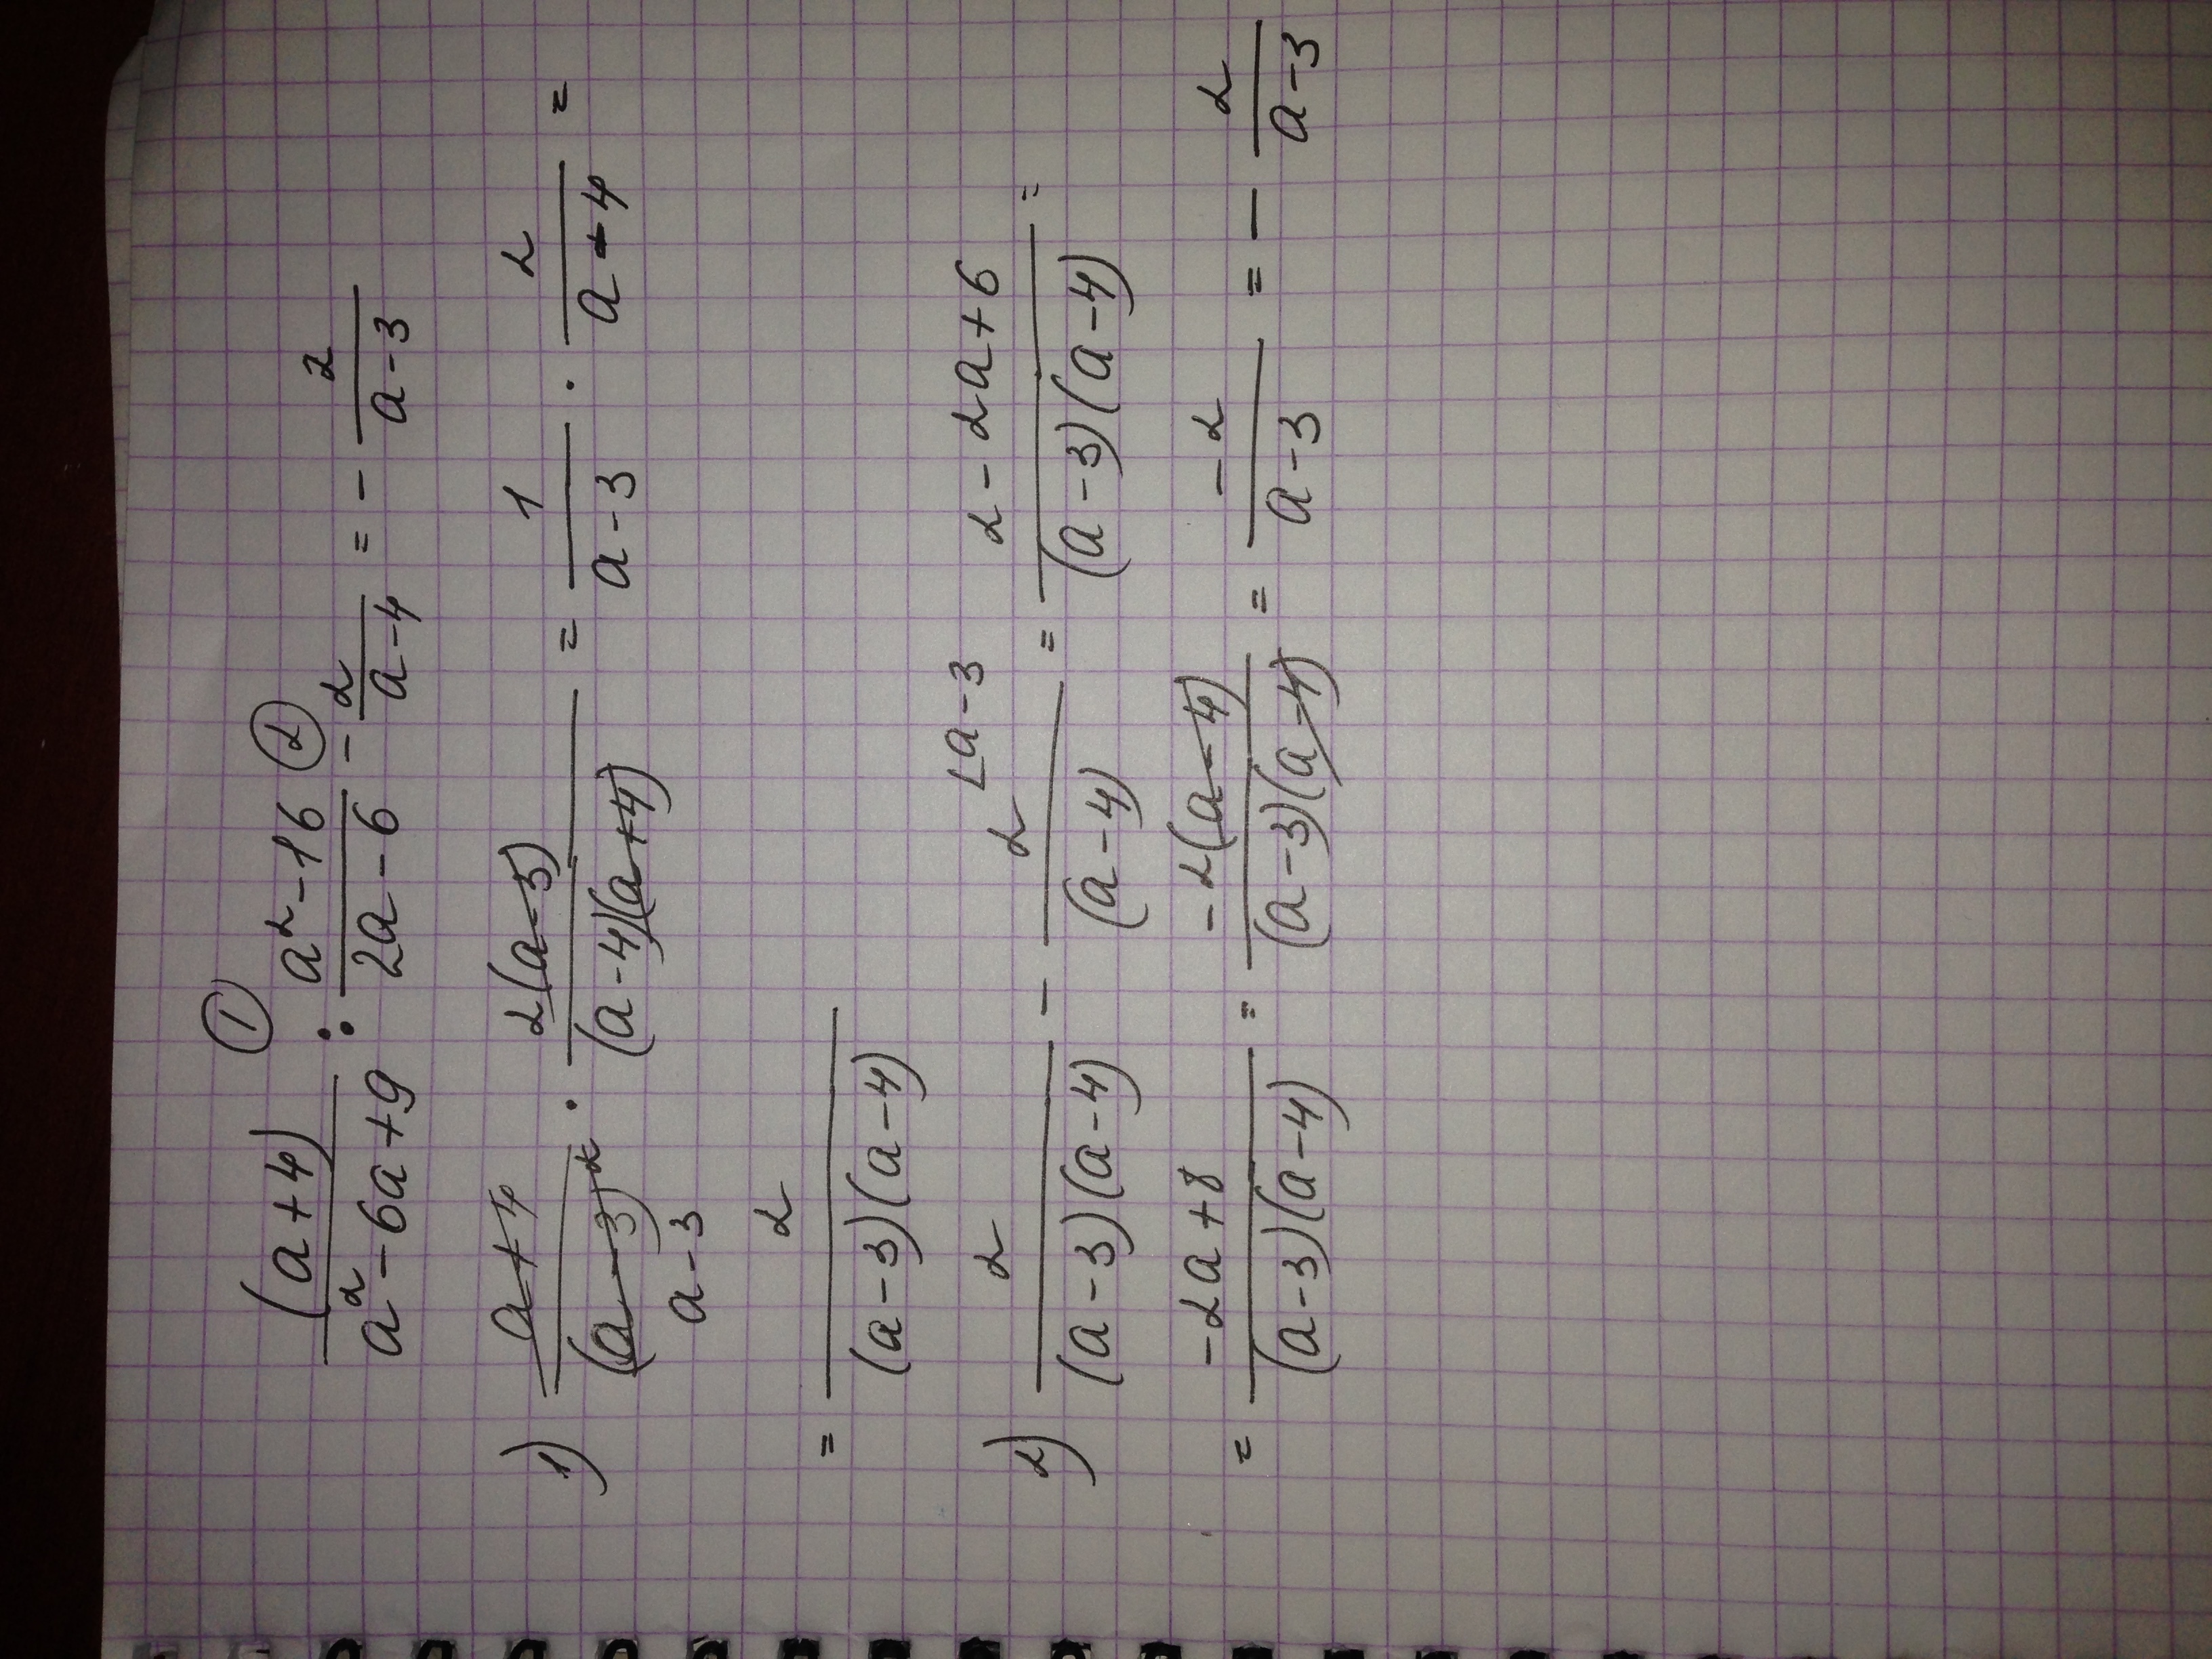 ① ②
(a+4)/(a²-6a+9) : (a²-16)/(2a-6) - 2/(a-4) = - 2/(a-3)
1) (a+4)/(a-3)² · 2(a-3)/((a-4)(a+4)) = 1/(a-3) · 2/(a-4) =
a-3
= 2/((a-3)(a-4))
2) 2/((a-3)(a-4)) - 2/(a-4) ⌊a-3 = (2-2a+6)/((a-3)(a-4)) =
= (-2a+8)/((a-3)(a-4)) = -2(a-4)/((a-3)(a-4)) = -2/(a-3) = - 2/(a-3)